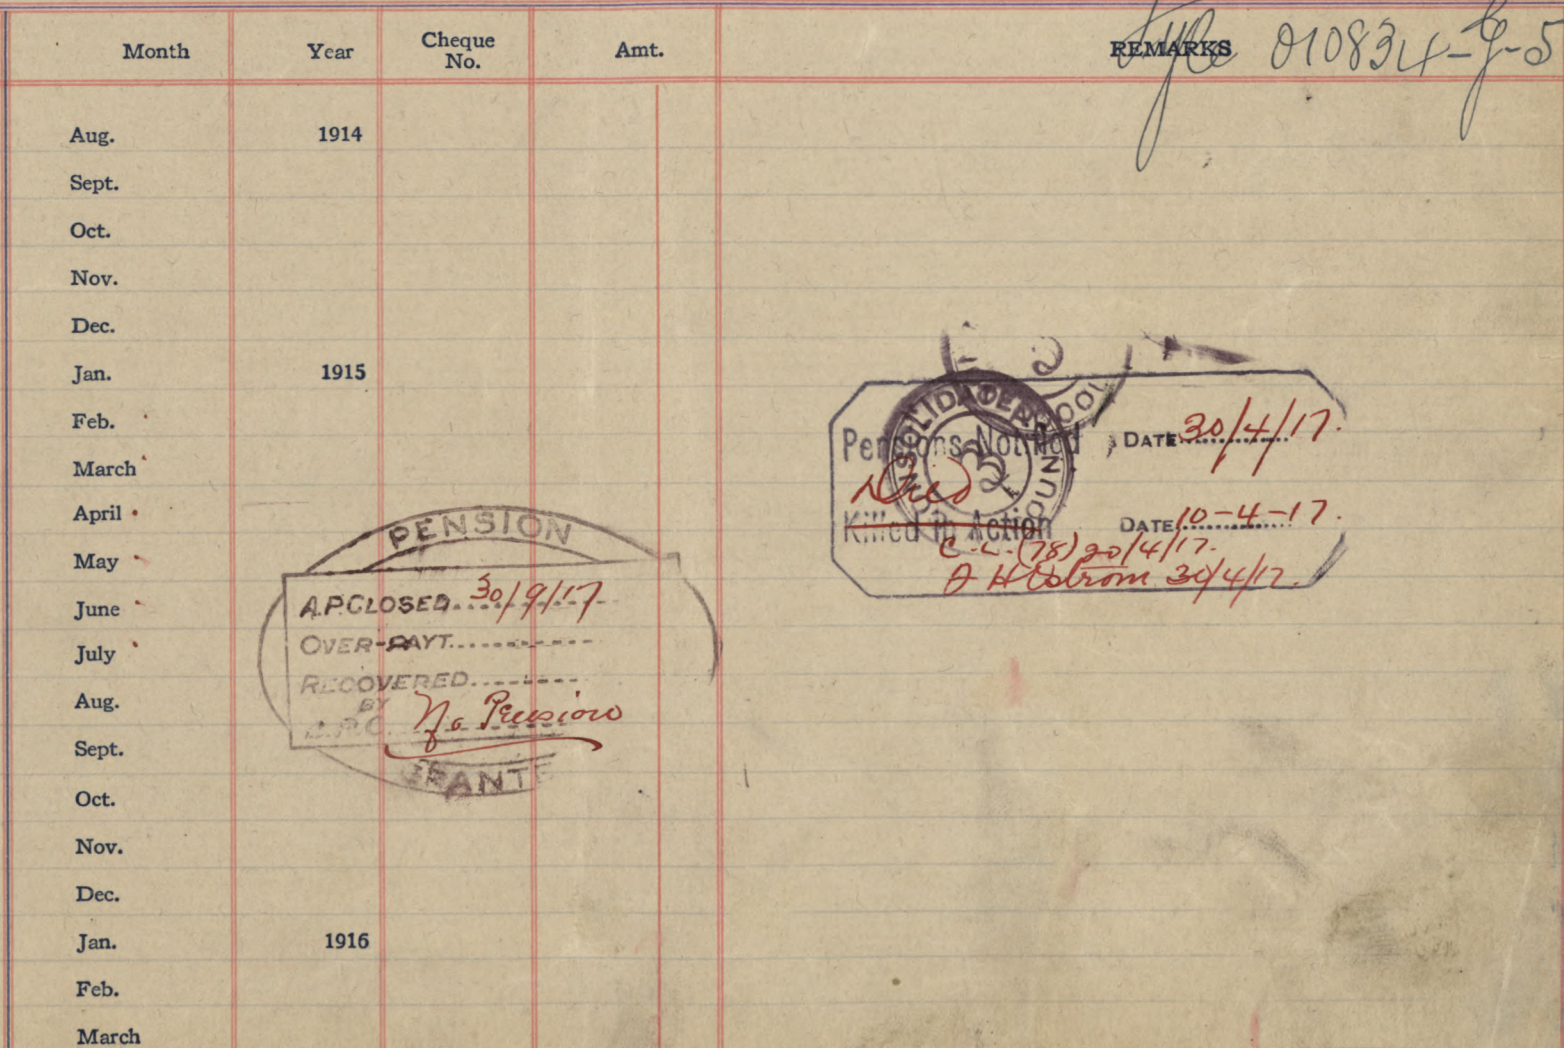 010834-G-5
Month Year Cheque No. Amt. REMARKS
Aug. 1914
Sept.
Oct.
Nov.
Dec.
Jan. 1915
Feb.
March
April
May
June
July
Aug.
Sept.
Oct.
Nov.
Dec.
Jan. 1916
Feb.
March
PENSION
A.P. CLOSED 30/9/17
OVER-PAYT.
RECOVERED
BY
No Pension
Pensions Notified DATE 30/4/17.
Died
Killed in Action DATE 10-4-17.
C.L. (78) 20/4/17.
30/4/17.